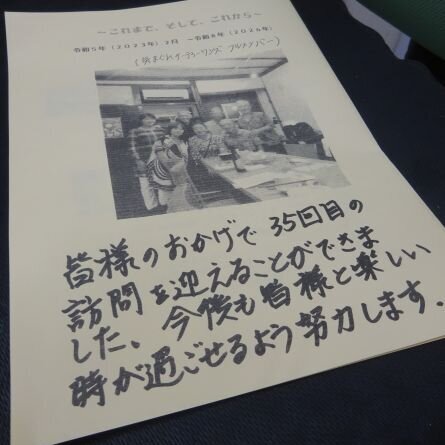 ～これまで、そして、これから～
令和5年（2023年）2月 ～令和8年（2026年）
皆様のおかげで 35回目の
訪問を迎えることができま
した、今後も皆様と楽しい
時が過ごせるよう努力します。